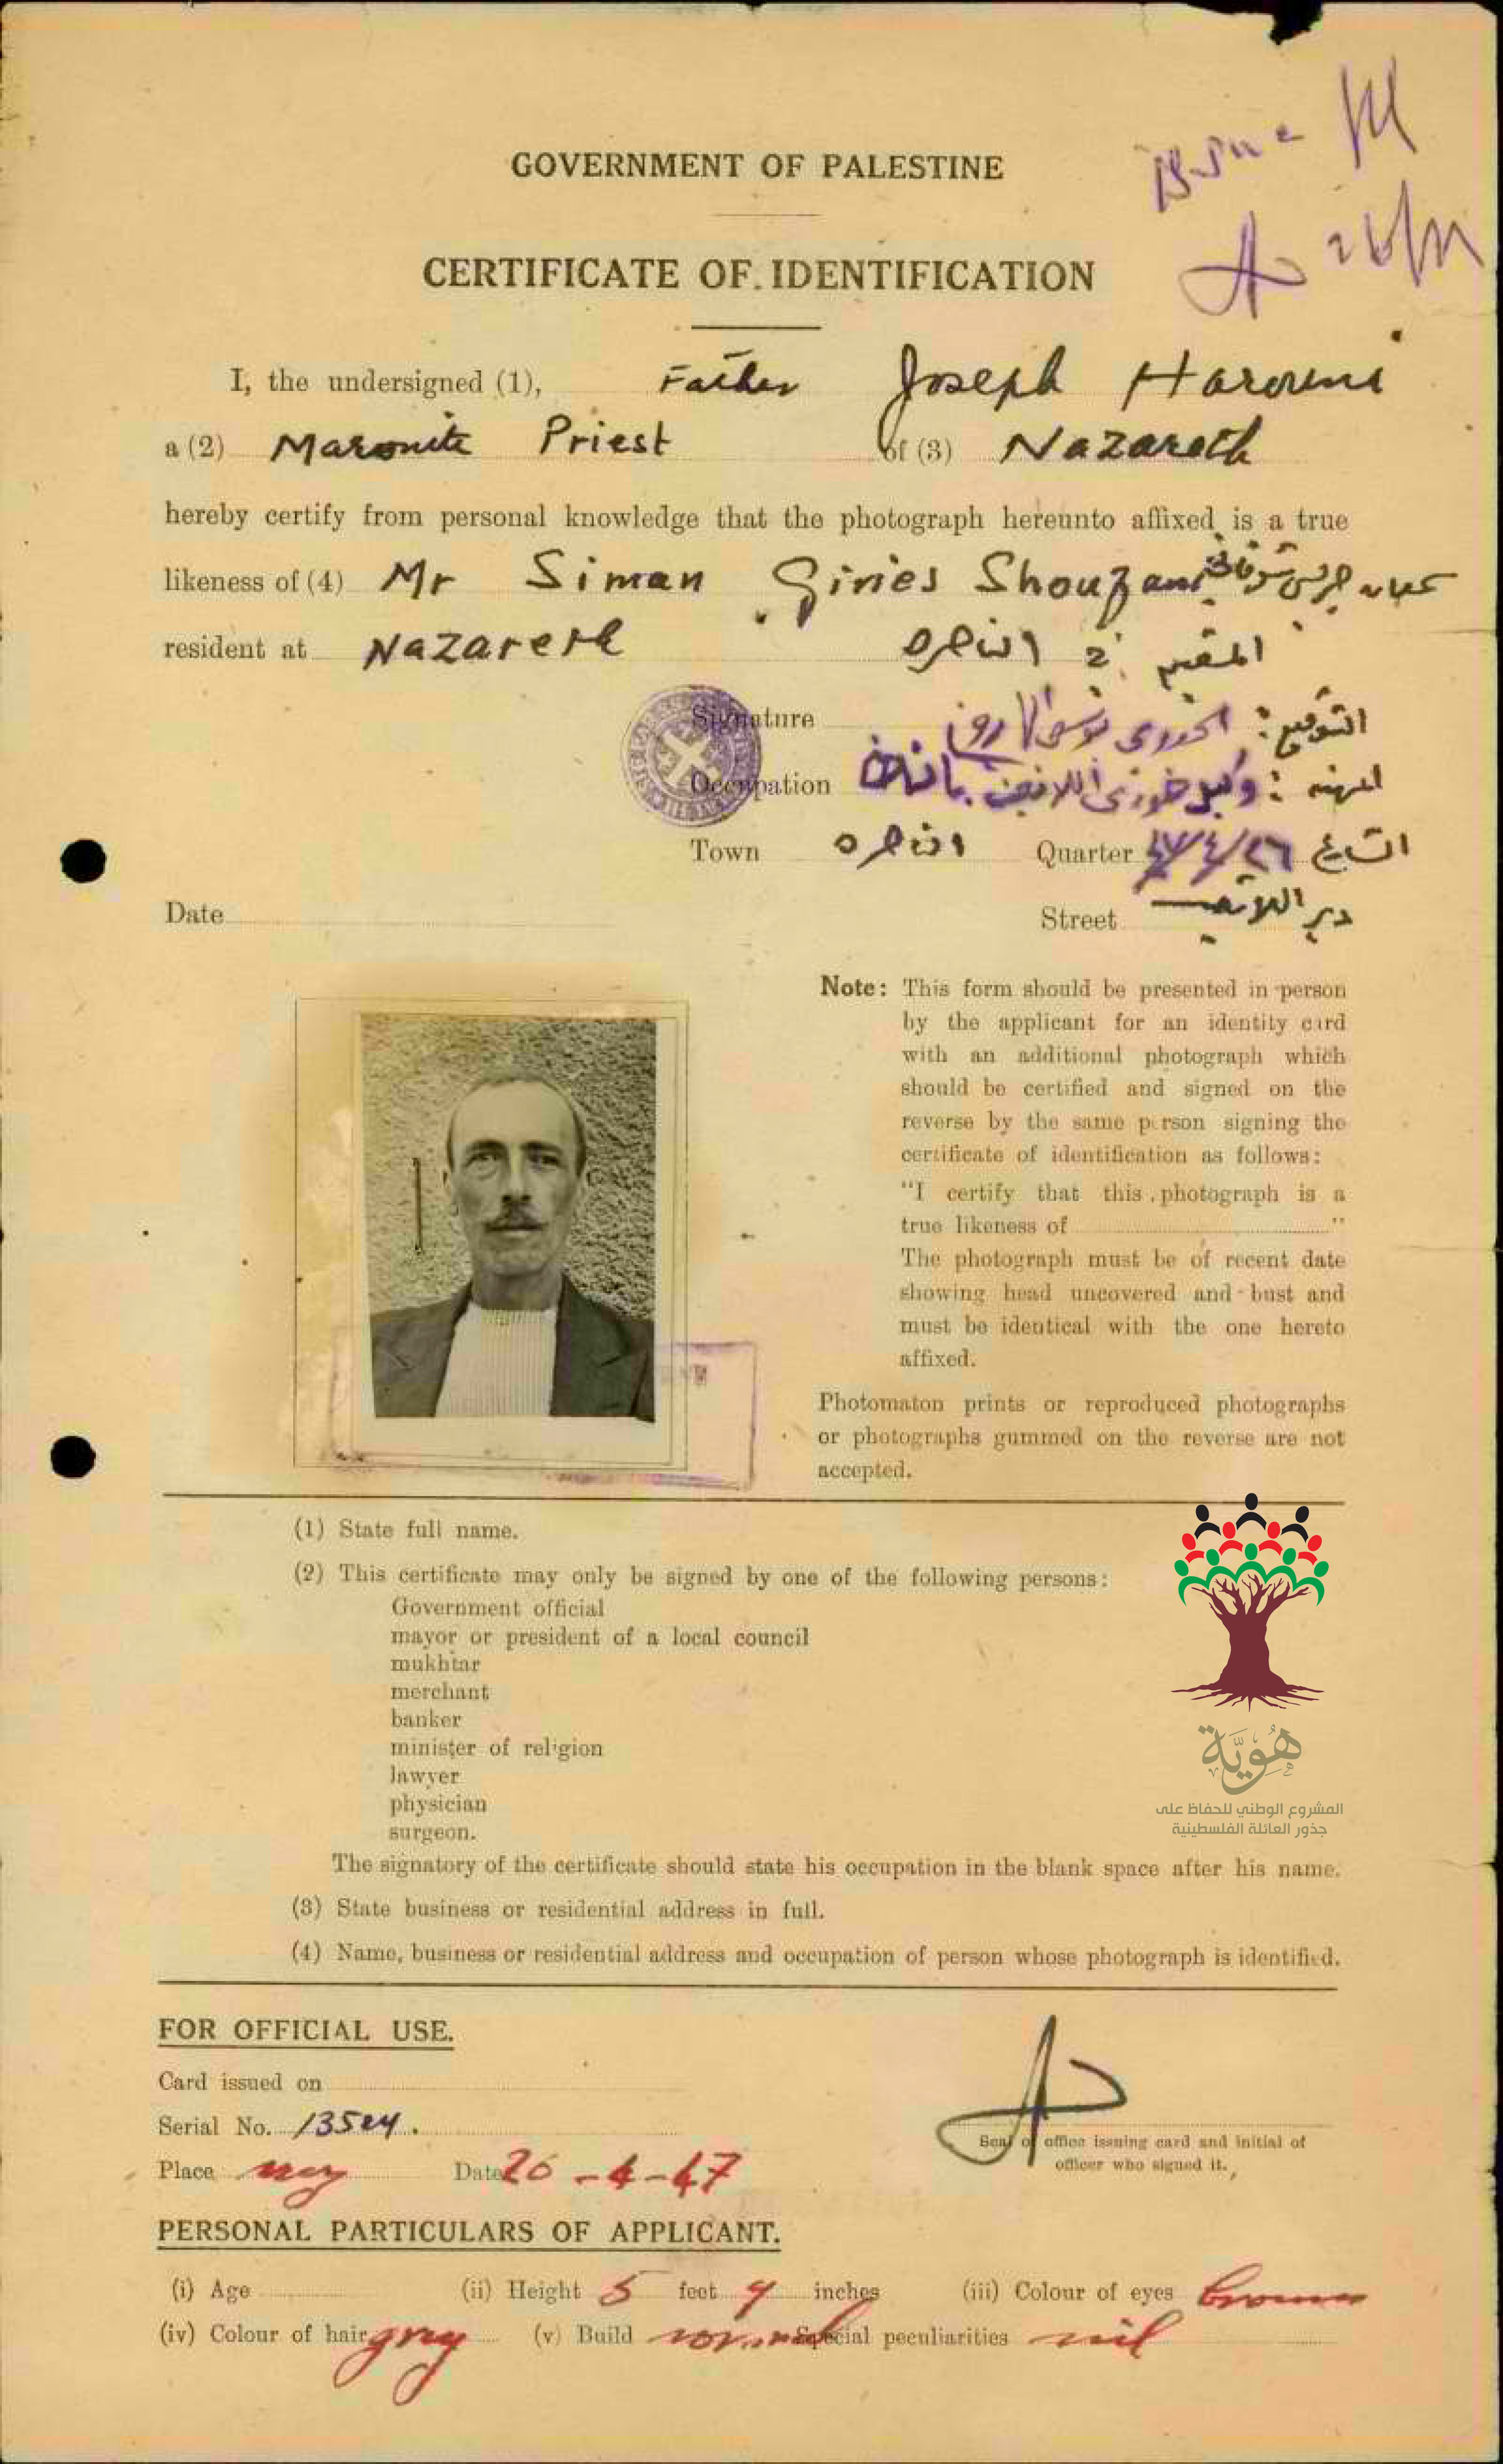 GOVERNMENT OF PALESTINE
CERTIFICATE OF IDENTIFICATION
I, the undersigned (1), Father Joseph Harouni
a (2) Maronite Priest of (3) Nazareth
hereby certify from personal knowledge that the photograph hereunto affixed is a true
likeness of (4) Mr Siman Giries Shoufani سمعان جريس شوفاني
resident at Nazareth المقيم في الناصره
Signature التوقيع: الخوري
Occupation المهنه:
Town الناصره Quarter التاريخ ٤٧/٤/٢٦
Date
Street دير اللاتين
Note: This form should be presented in person
by the applicant for an identity card
with an additional photograph which
should be certified and signed on the
reverse by the same person signing the
certificate of identification as follows:
"I certify that this photograph is a
true likeness of "
The photograph must be of recent date
showing head uncovered and bust and
must be identical with the one hereto
affixed.
Photomaton prints or reproduced photographs
or photographs gummed on the reverse are not
accepted.
(1) State full name.
(2) This certificate may only be signed by one of the following persons:
Government official
mayor or president of a local council
mukhtar
merchant
banker
minister of religion
lawyer
physician
surgeon.
هُوِيَّة
المشروع الوطني للحفاظ على
جذور العائلة الفلسطينية
The signatory of the certificate should state his occupation in the blank space after his name.
(3) State business or residential address in full.
(4) Name, business or residential address and occupation of person whose photograph is identified.
FOR OFFICIAL USE.
Card issued on
Serial No. 13524.
Seal of office issuing card and initial of
officer who signed it.
Place Date 26-4-47
PERSONAL PARTICULARS OF APPLICANT.
(i) Age (ii) Height 5 feet 9 inches (iii) Colour of eyes brown
(iv) Colour of hair grey (v) Build normal Special peculiarities nil